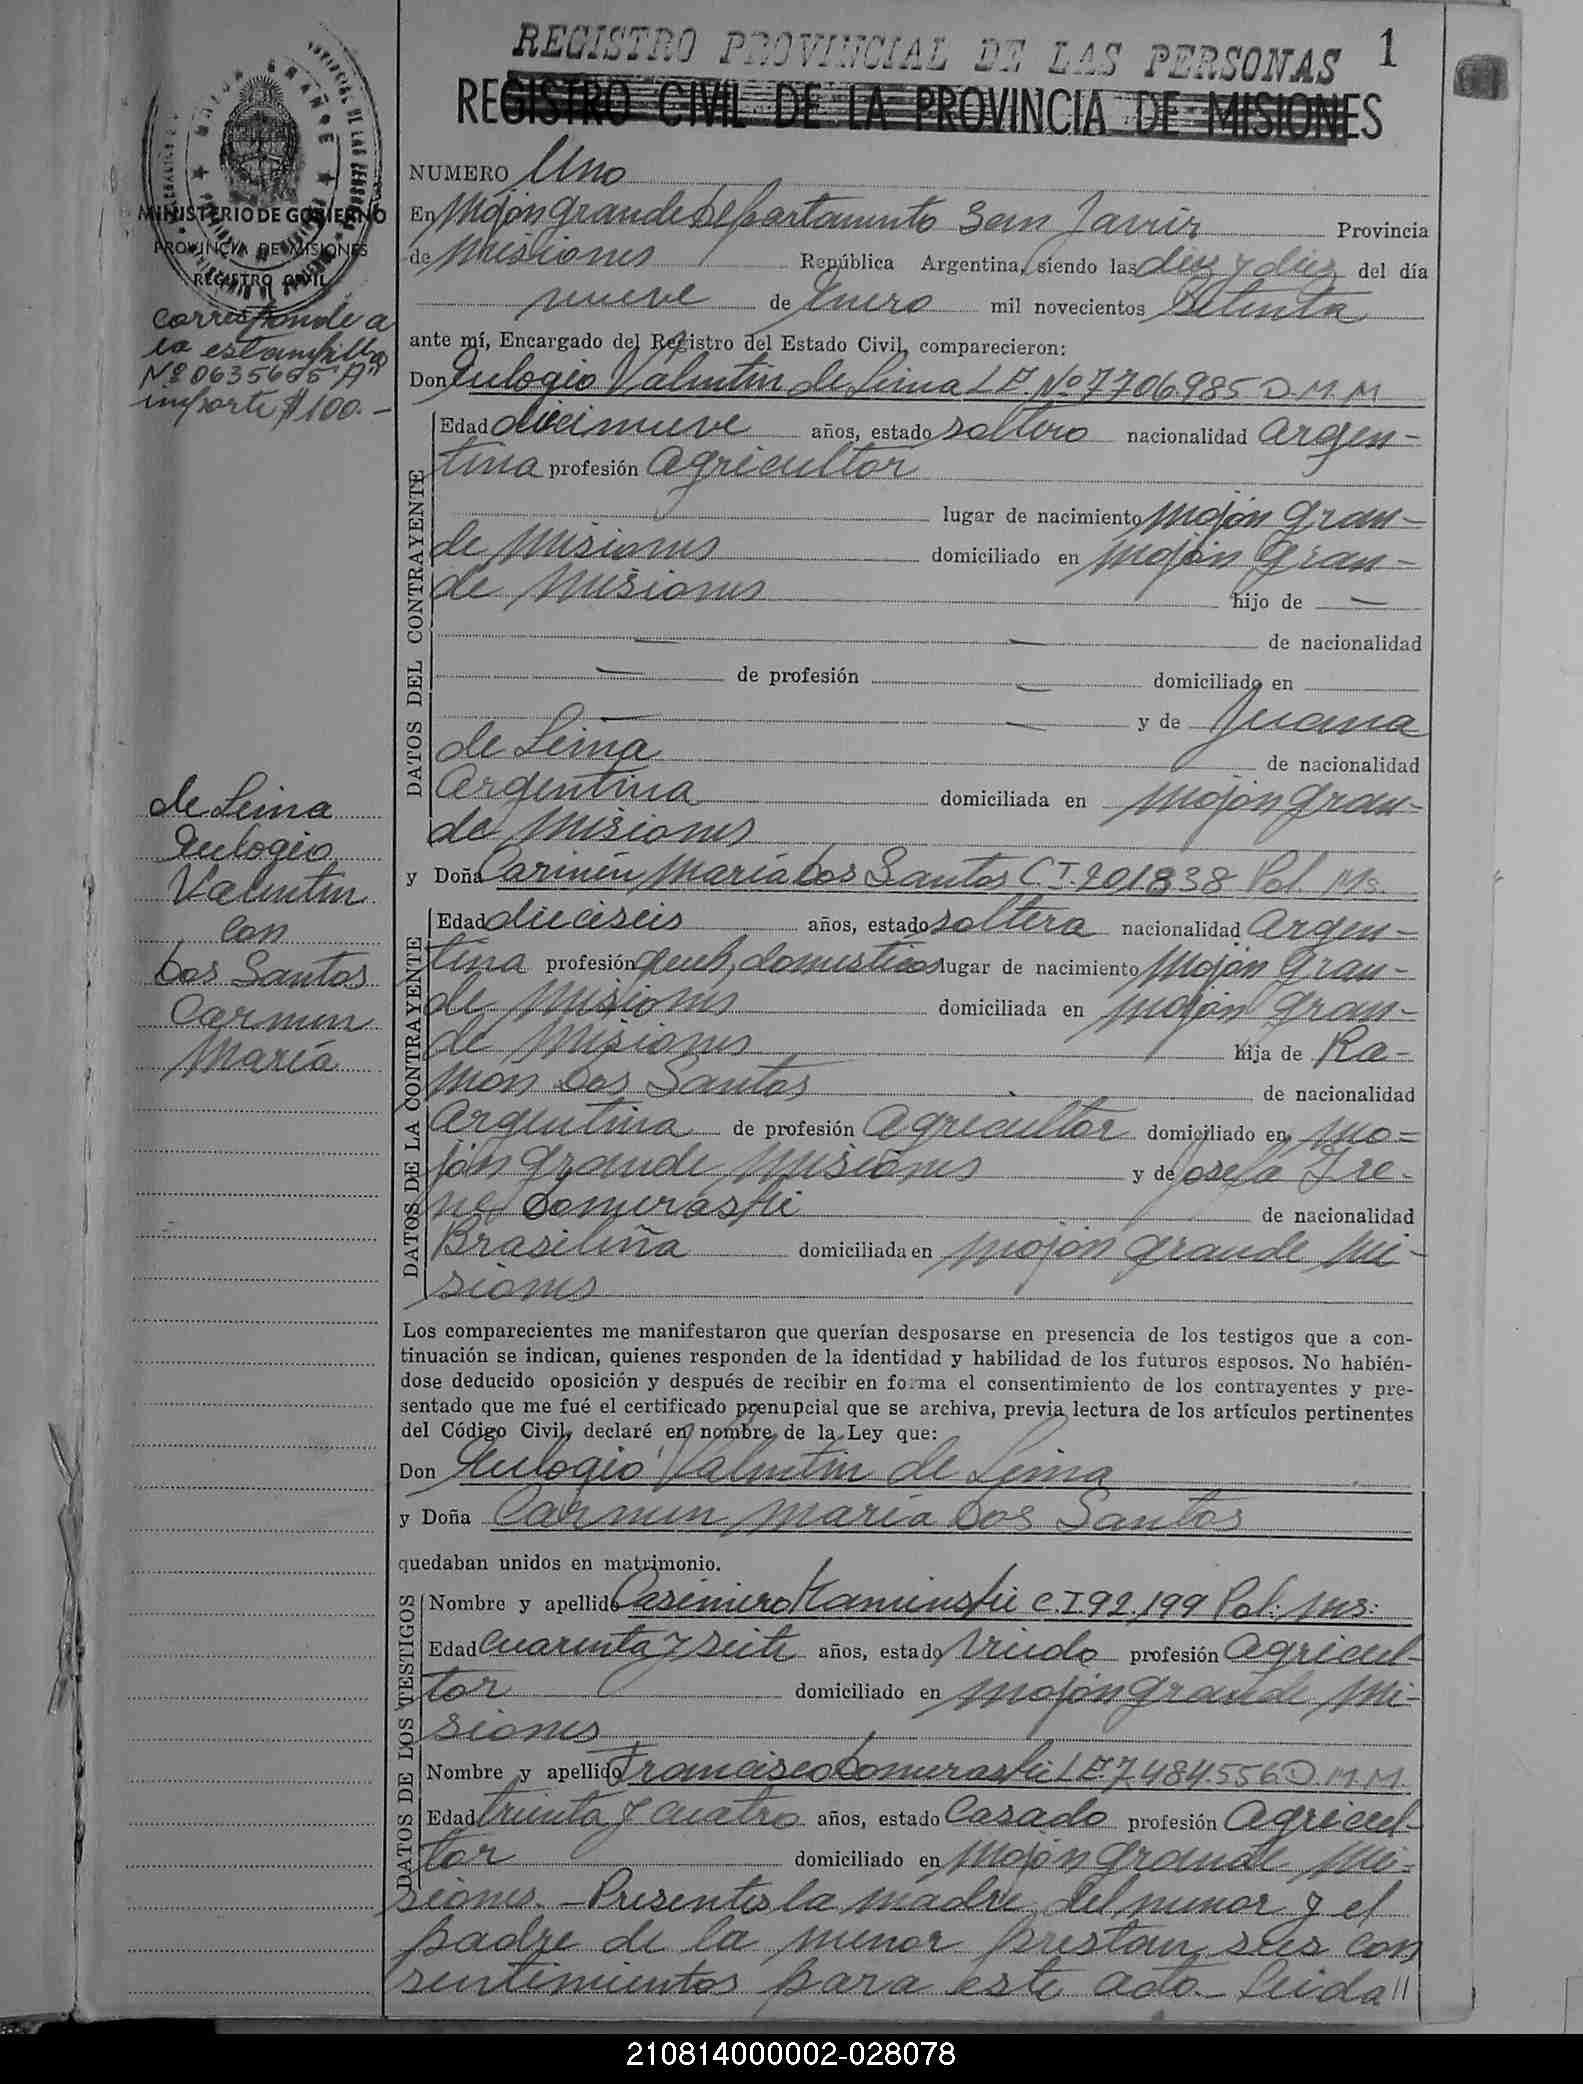 REGISTRO PROVINCIAL DE LAS PERSONAS 1
REGISTRO CIVIL DE LA PROVINCIA DE MISIONES
MINISTERIO DE GOBIERNO
PROVINCIA DE MISIONES
REGISTRO CIVIL
corresponde a
la estampilla
importe $100.-
NUMERO Uno
En Mojón grande Departamento San Javier Provincia
de Misiones República Argentina, siendo las diez y diez del día
nueve de Enero mil novecientos Setenta
ante mí, Encargado del Registro del Estado Civil, comparecieron:
Don Eulogio Valentin de Lima L.E. Nº 7706985 D.M.M
Edad diecinueve años, estado soltero nacionalidad Argen-
tina profesión Agricultor
lugar de nacimiento Mojón gran-
de Misiones domiciliado en Mojón Gran-
de Misiones hijo de —
— — de nacionalidad
— de profesión — domiciliado en
— — y de Juana
de Lima de nacionalidad
Argentina domiciliada en Mojón gran-
de Misiones
y Doña Carmen María Dos Santos C.I. 201838 Pol. Ms.
Edad dieciseis años, estado soltera nacionalidad Argen-
tina profesión queh. domesticos lugar de nacimiento Mojón Gran-
de Misiones domiciliada en Mojón Gran-
de Misiones hija de Ra-
món Dos Santos de nacionalidad
Argentina de profesión Agricultor domiciliado en Mo-
jón grande Misiones y de Josefa Ire-
ne Domeraski de nacionalidad
Brasileña domiciliada en Mojón grande Mi-
siones
DATOS DEL CONTRAYENTE
DATOS DE LA CONTRAYENTE
de Lima
Eulogio
Valentin
con
Dos Santos
Carmen
María
Los comparecientes me manifestaron que querían desposarse en presencia de los testigos que a con-
tinuación se indican, quienes responden de la identidad y habilidad de los futuros esposos. No habién-
dose deducido oposición y después de recibir en forma el consentimiento de los contrayentes y pre-
sentado que me fué el certificado prenupcial que se archiva, previa lectura de los artículos pertinentes
del Código Civil, declaré en nombre de la Ley que:
Don Eulogio Valentin de Lima
y Doña Carmen María Dos Santos
quedaban unidos en matrimonio.
DATOS DE LOS TESTIGOS
Nombre y apellido Casimiro Kaminski C.I 92.199 Pol. Ms.
Edad cuarenta y siete años, estado Viudo profesión Agricul-
tor domiciliado en Mojón grande Mi-
siones
Nombre y apellido Francisco Domeraski L.E. 7.484.556 D.M.M.
Edad treinta y cuatro años, estado Casado profesión Agricul-
tor domiciliado en Mojón grande Mi-
siones. - Presentes la madre del menor y el
padre de la menor prestan sus con
sentimientos para este acto.- Leida "
210814000002-028078